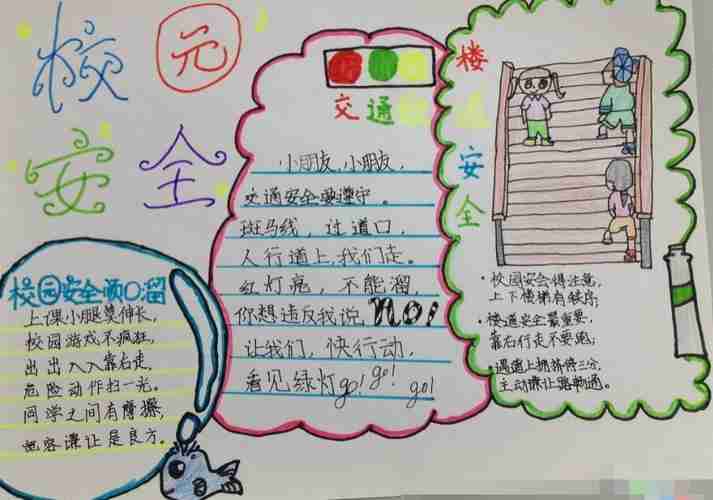 校园
安全
校园安全顺口溜
上课小腿莫伸长,
校园游戏不疯狂,
出出入入靠右走,
危险动作扫一光。
同学之间有摩擦,
容谦让是良方。
交通
小朋友,小朋友,
交通安全要遵守。
斑马线,过道口,
人行道上,我们走。
红灯亮,不能溜,
你想违反我说NO!
让我们,快行动,
看见绿灯go! go! go!
楼道安全
·校园安全得注意,
上下楼梯有秩序;
·楼道安全最重要,
靠右行走不要跑;
·遇上拥挤停三分,
主动谦让路畅通。